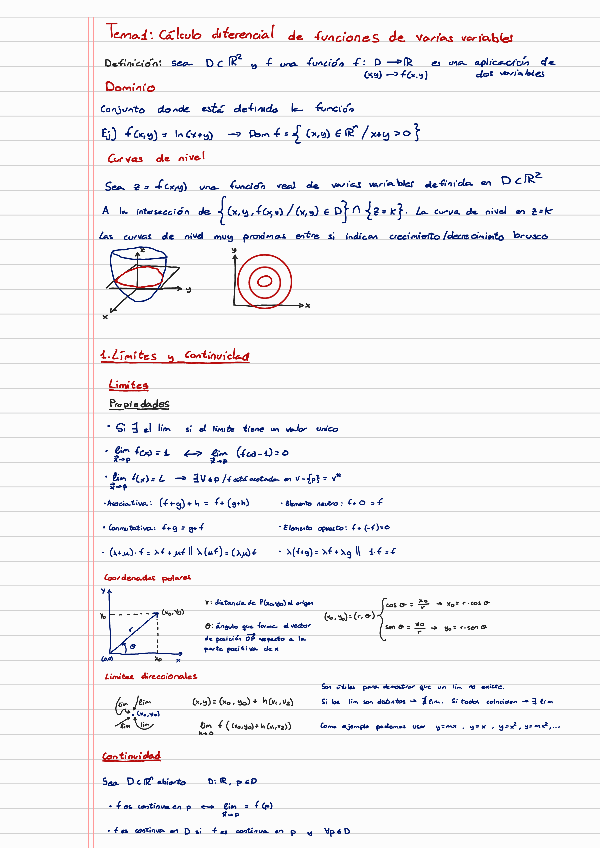 Tema 1: Cálculo diferencial de funciones de varias variables
Definición: sea D⊂ℝ² y f una función f: D → ℝ es una aplicación de
(x,y) → f(x,y) dos variables
Dominio
Conjunto donde está definido la función
Ej) f(x,y) = ln(x+y) → Dom f = { (x,y) ∈ ℝⁿ / x+y > 0 }
Curvas de nivel
Sea z = f(x,y) una función real de varias variables definida en D⊂ℝ²
A la intersección de { (x, y, f(x,y) / (x,y) ∈ D } ∩ { z = k }. La curva de nivel en z=k
Las curvas de nivel muy proximas entre si indican crecimiento/decrecimiento brusco
z
y
x
y
x
1. Límites y Continuidad
Límites
Propiedades
· Si ∃ el lim si el límite tiene un valor unico
· lim f(x) = 1 ⟷ lim (f(x)-1) = 0
x→p x→p
· lim f(x) = L → ∃ V⊕p / f está acotada en V-{p} = V*
x→p
· Asociativa: (f+g)+h = f+(g+h) · Elemento neutro: f+0 = f
· Conmutativa: f+g = g+f · Elemento opuesto: f+(-f)=0
· (λ+μ)·f = λf + μf || λ(μf) = (λμ)f · λ(f+g) = λf + λg || 1·f = f
Coordenadas polares
y
y₀
(x₀,y₀)
r
θ
(0,0)
x₀
x
r: distancia de P(x₀,y₀) al origen
θ: ángulo que forma el vector
de posición OP respecto a la
parte positiva de x
(x₀,y₀) = (r,θ) { cos θ = x₀/r → x₀ = r·cos θ
sen θ = y₀/r → y₀ = r·sen θ
Límites direccionales
lim lim
(x₀,y₀)
lim lim
(x,y) = (x₀,y₀) + h(v₁,v₂)
lim f((x₀,y₀)+h(v₁,v₂))
h→0
Son útiles para demostrar que un lim no existe.
Si los lim son distintos → ∄ lim. Si todos coinciden → ∃ lim
Como ejemplo podemos usar y=mx, y=x, y=x², y=mx²,...
Continuidad
Sea D⊂ℝⁿ abierto D:ℝ, p∈D
· f es continua en p ⟷ lim = f(p)
x→p
· f es continua en D si f es continua en p y ∀p∈D